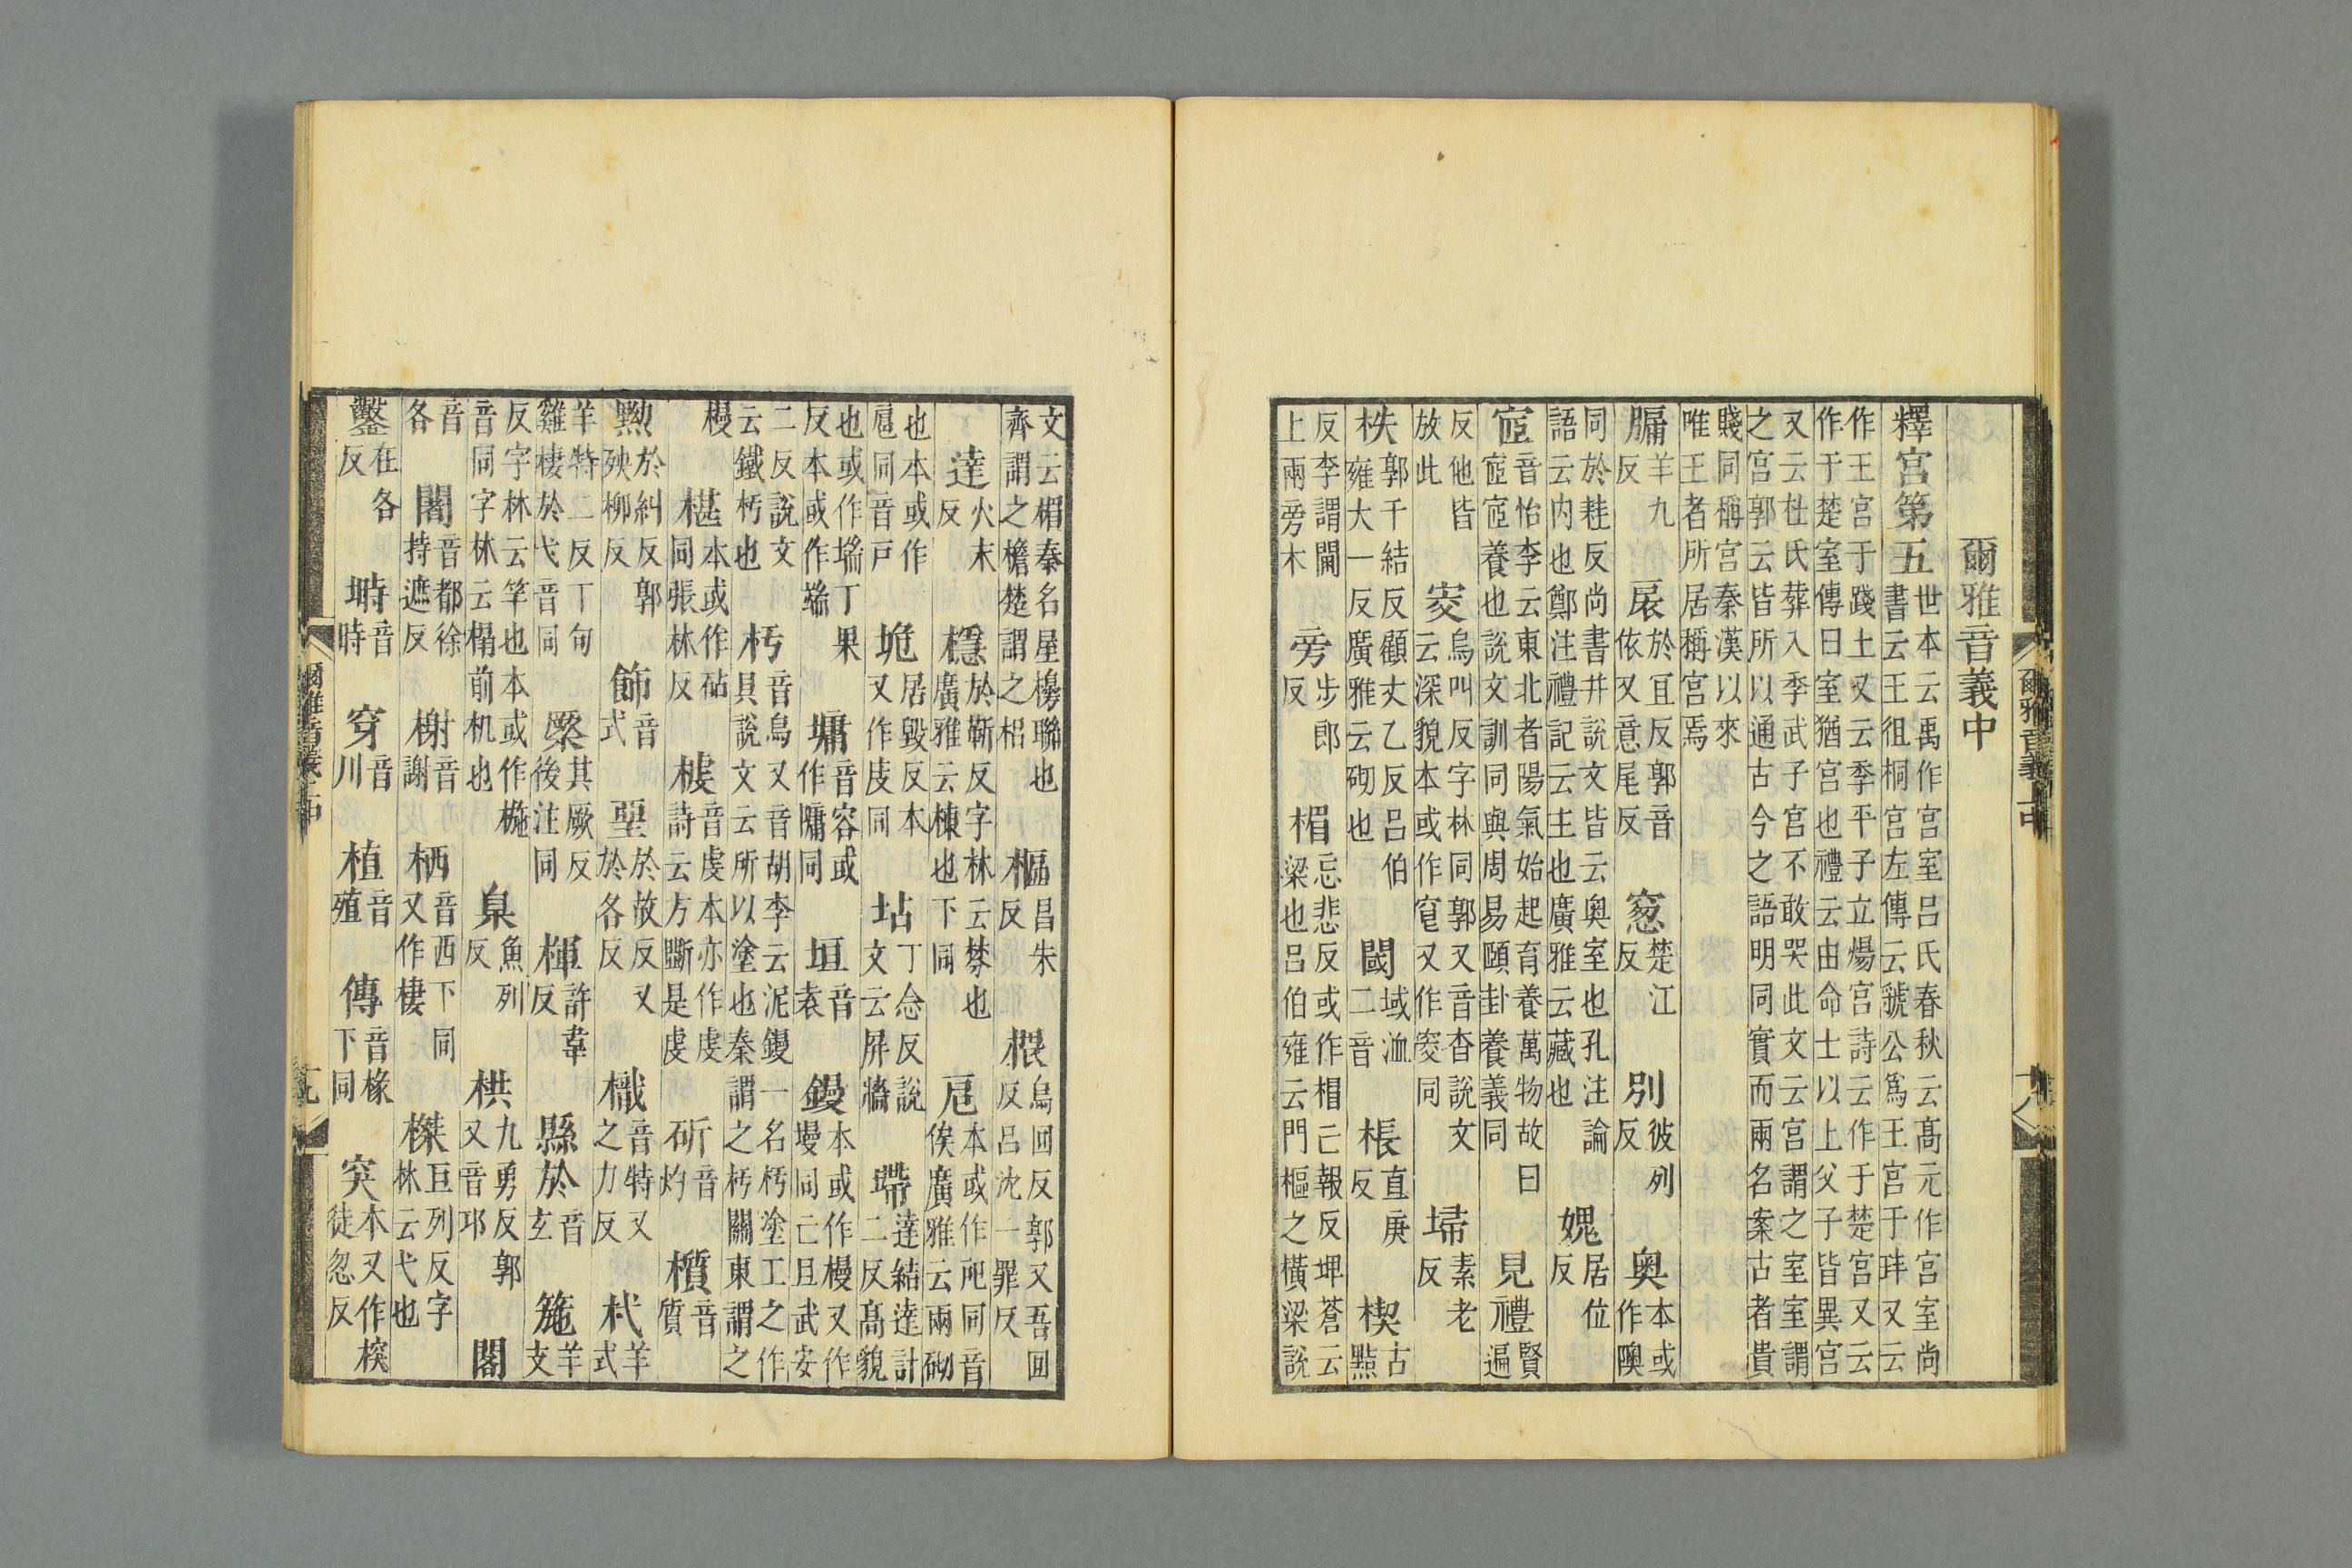 爾雅音義中
釋宮第五世本云禹作宮室呂氏春秋云髙元作宮室尚書云王徂桐宮左傳云虢公爲王宮于玤又云
作王宮于踐土又云季平子立煬宮詩云作于楚宮又云作于楚室傳曰室猶宮也禮云由命士以上父子皆異宮
又云杜氏葬入季武子宮不敢哭此文云宮謂之室室謂之宮郭云皆所以通古今之語明同實而兩名案古者貴
賤同稱宮秦漢以來唯王者所居稱宮焉
牖羊九反扆於豈反郭音依又意尾反窓楚江反別彼列反奥本或作隩
同於耗反尚書并說文皆云奥室也孔注論語云内也鄭注禮記云主也廣雅云藏也媿居位反
宧音怡李云東北者陽氣始起育養萬物故曰宧宧養也說文訓同與周易頤卦養義同見禮賢遍
反他皆放此烏叫反字林同郭又音杳說文云深貌本或作又作同埽素老反
柣郭千結反顧丈乙反呂伯雍大一反廣雅云砌也閾域洫二音棖直庚反楔古黠
反李謂闑上兩旁木旁步郎反楣忘悲反或作亡報反埤蒼云梁也呂伯雍云門樞之橫梁說
文云楣秦名屋櫋聯也齊謂之檐楚謂之梠樞昌朱反椳烏回反郭又吾回反呂沈一罪反
達火末反檼於靳反字林云棼也廣雅云棟也下同本或作同音俟廣雅云兩砌
也本或作扈同音戸垝居毀反本又作庋同坫丁念反說文云屏牆墆達結達計二反髙貌
也或作丁果反本或作墉音容或作同垣音袁鏝本或作槾又作墁同亡旦武安
二反說文云鐵杇也杇音烏又音胡李云泥鏝一名杇塗工之作具說文云所以塗也秦謂之杇關東謂之
槾椹本或作砧同張林反榩音虔本亦作虔詩云方斲是虔斫音灼櫍音質
黝於糾反郭殃柳反飾音式堊於故反又於各反樴音特又之力反杙羊式
羊特二反下句雞棲於弋音同橜其厥反後注同楎許韋反縣於音玄箷羊支
反字林云竿也本或作椸音同字林云榻前机也臬魚列反栱九勇反郭又音邛閣
音各闍音都徐持遮反榭音謝栖音西下同又作棲榤巨列反字林云弋也
鑿在各反塒音時穿音川植音殖傳音椽下同突本又作㮏徒忽反